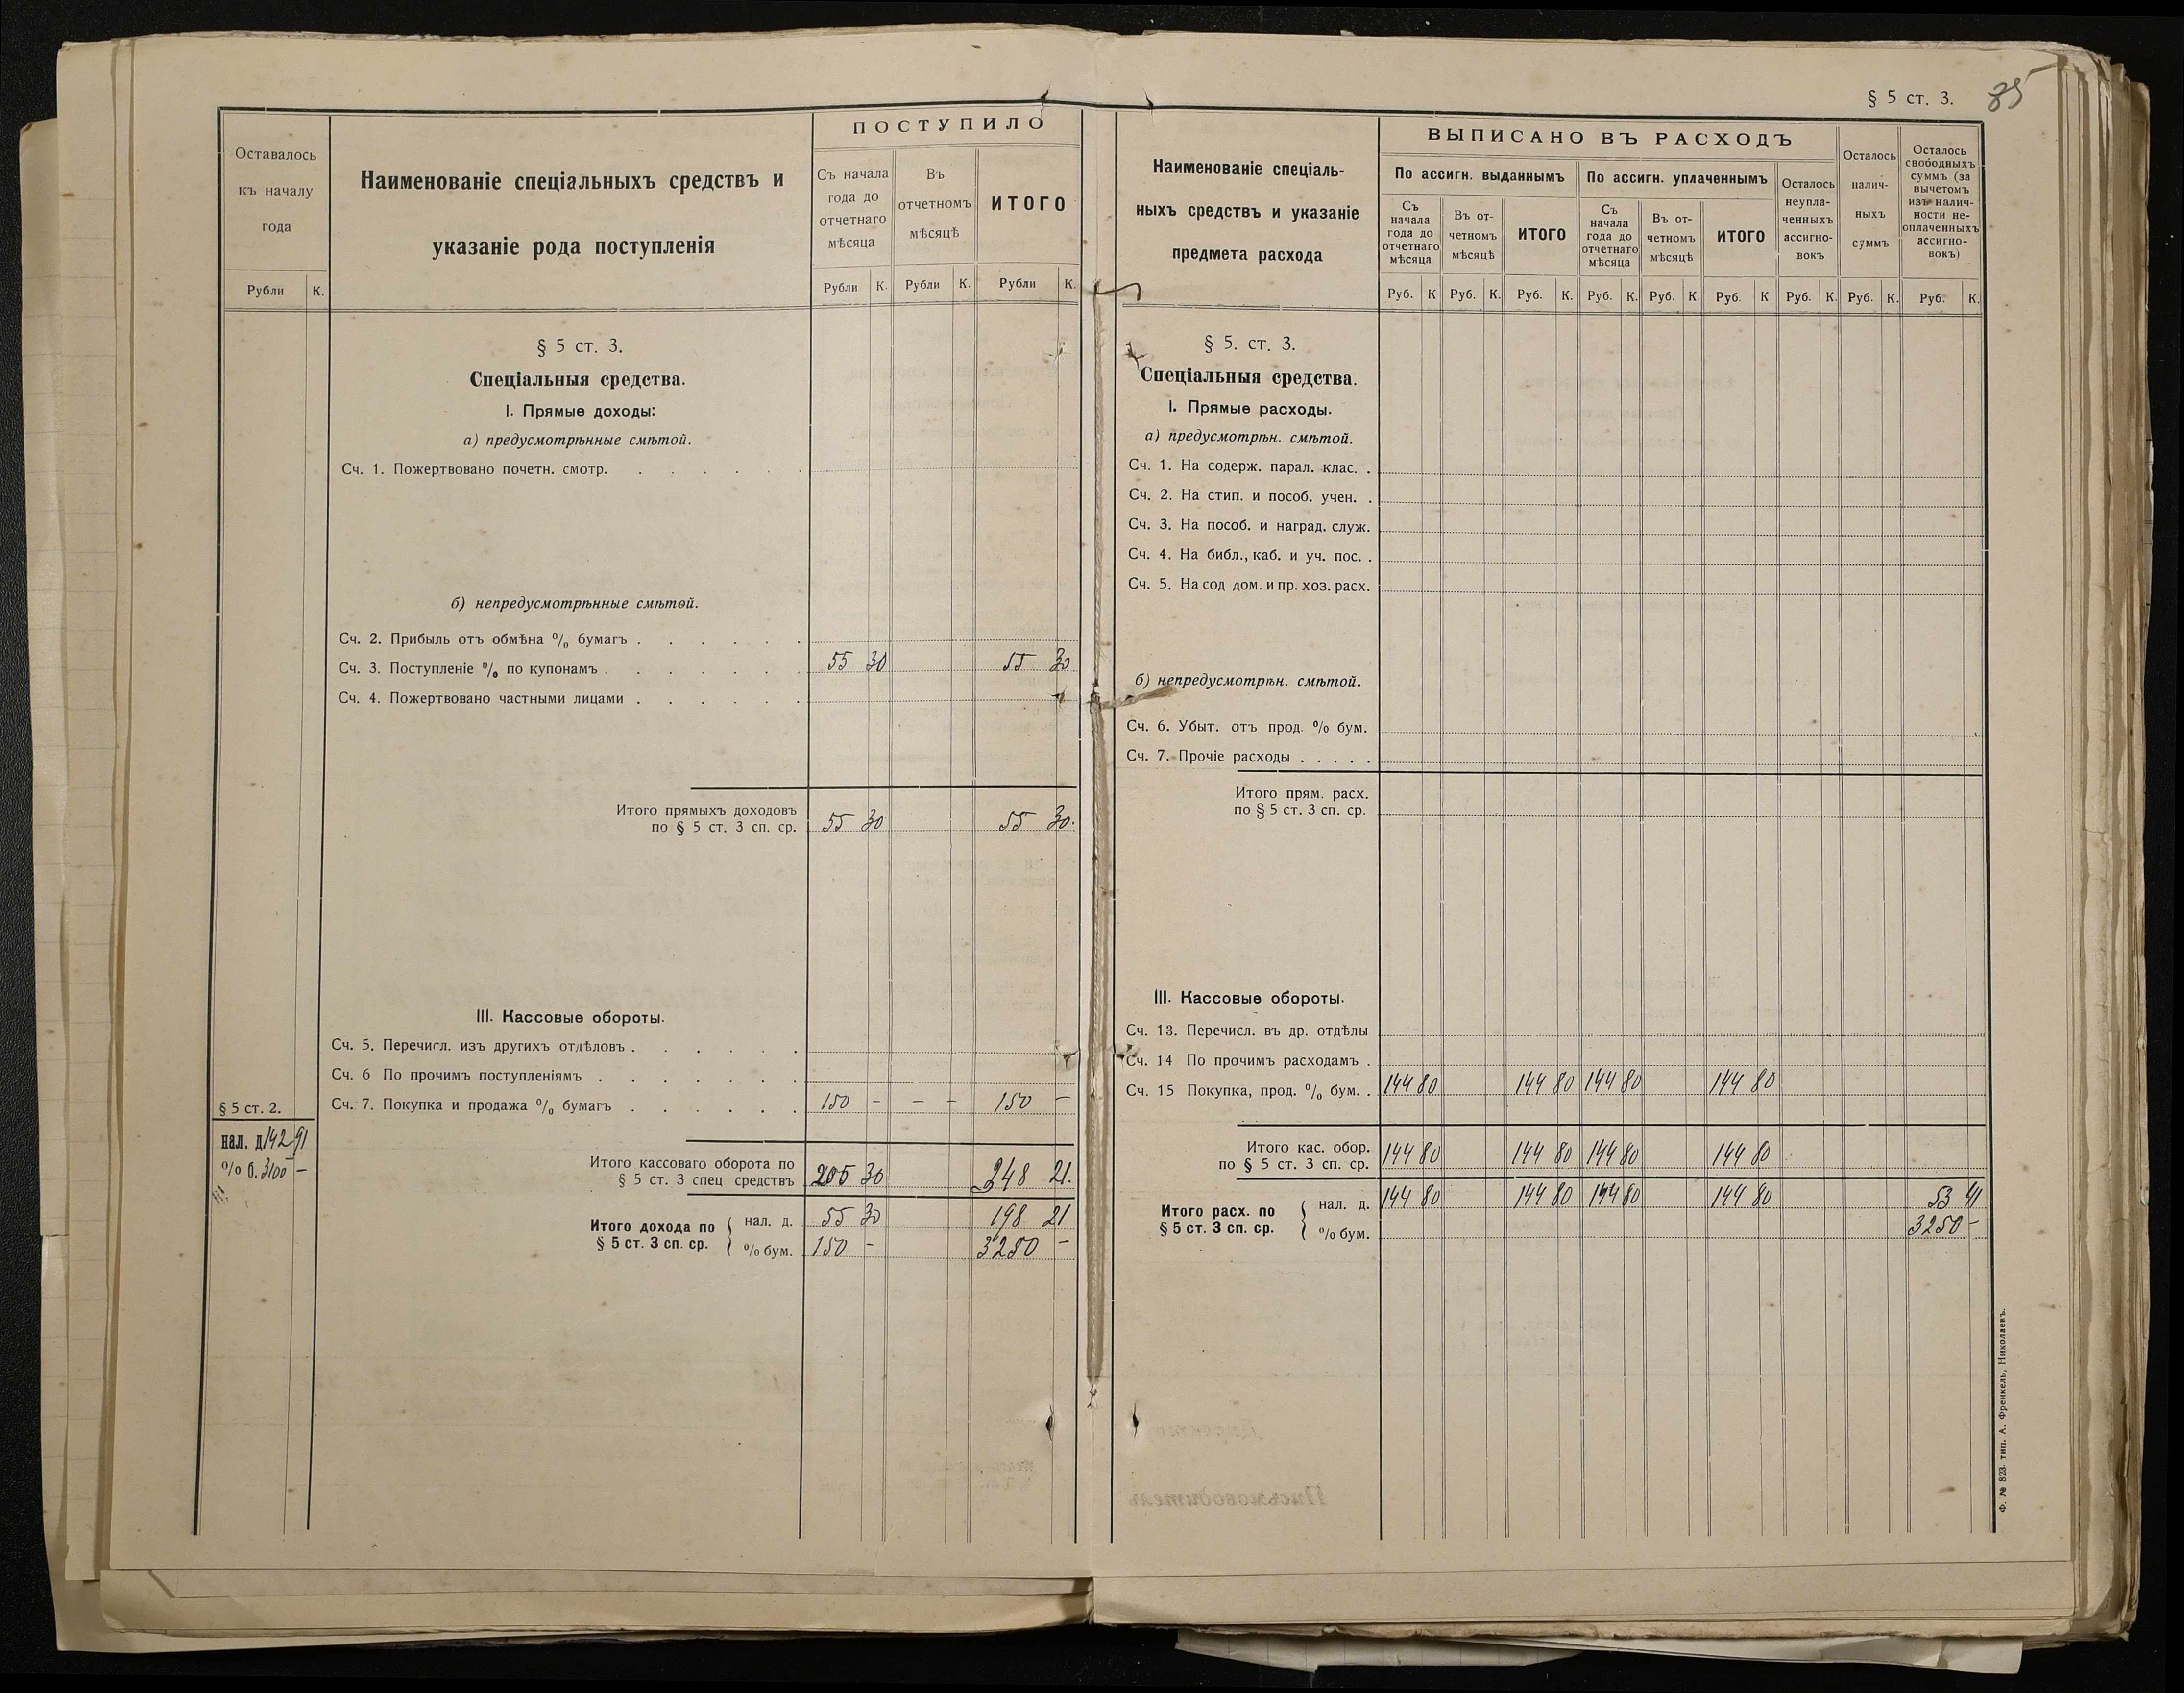 § 5 ст. 3.
85
Оставалось
къ началу
года
Рубли К.
Наименованіе спеціальныхъ средствъ и
указаніе рода поступленія
ПОСТУПИЛО
Съ начала
года до
отчетнаго
мѣсяца
Въ
отчетномъ
мѣсяцѣ
ИТОГО
Рубли К. Рубли К. Рубли К.
§ 5 ст. 3.
Спеціальныя средства.
I. Прямые доходы:
а) предусмотрѣнные смѣтой.
Сч. 1. Пожертвовано почетн. смотр.
б) непредусмотрѣнные смѣтой.
Сч. 2. Прибыль отъ обмѣна % бумагъ
Сч. 3. Поступленіе % по купонамъ 55 30 55 30
Сч. 4. Пожертвовано частными лицами
Итого прямыхъ доходовъ
по § 5 ст. 3 сп. ср. 55 30 55 30.
III. Кассовые обороты.
Сч. 5. Перечисл. изъ другихъ отдѣловъ
Сч. 6 По прочимъ поступленіямъ
Сч. 7. Покупка и продажа % бумагъ 150 – – – 150 –
§ 5 ст. 2.
нал. д. 142 91
% б. 3100 –
Итого кассоваго оборота по
§ 5 ст. 3 спец средствъ 205 30 348 21.
Итого дохода по
§ 5 ст. 3 сп. ср.
нал. д. 55 30 198 21
% бум. 150 – 3250 –
Наименованіе спеціаль-
ныхъ средствъ и указаніе
предмета расхода
ВЫПИСАНО ВЪ РАСХОДЪ
По ассигн. выданнымъ
По ассигн. уплаченнымъ
Съ
начала
года до
отчетнаго
мѣсяца
Въ от-
четномъ
мѣсяцѣ
ИТОГО
Съ
начала
года до
отчетнаго
мѣсяца
Въ от-
четномъ
мѣсяцѣ
ИТОГО
Осталось
неупла-
ченныхъ
ассигно-
вокъ
Осталось
налич-
ныхъ
суммъ
Осталось
свободныхъ
суммъ (за
вычетомъ
изъ налич-
ности не-
оплаченныхъ
ассигно-
вокъ)
Руб. К Руб. К. Руб. К. Руб. К. Руб. К Руб. К Руб. К. Руб. К. Руб. К.
§ 5. ст. 3.
Спеціальныя средства.
I. Прямые расходы.
а) предусмотрѣн. смѣтой.
Сч. 1. На содерж. парал. клас.
Сч. 2. На стип. и пособ. учен.
Сч. 3. На пособ. и наград. служ.
Сч. 4. На библ., каб. и уч. пос.
Сч. 5. На сод дом. и пр. хоз. расх.
б) непредусмотрѣн. смѣтой.
Сч. 6. Убыт. отъ прод. % бум.
Сч. 7. Прочіе расходы
Итого прям. расх.
по § 5 ст. 3 сп. ср.
III. Кассовые обороты.
Сч. 13. Перечисл. въ др. отдѣлы
Сч. 14 По прочимъ расходамъ
Сч. 15 Покупка, прод. % бум. 144 80 144 80 144 80 144 80
Итого кас. обор.
по § 5 ст. 3 сп. ср. 144 80 144 80 144 80 144 80
Итого расх. по
§ 5 ст. 3 сп. ср.
нал. д. 144 80 144 80 144 80 144 80 53 41
% бум. 3250 –
Ф. № 823. тип. А. Френкель, Николаевъ.